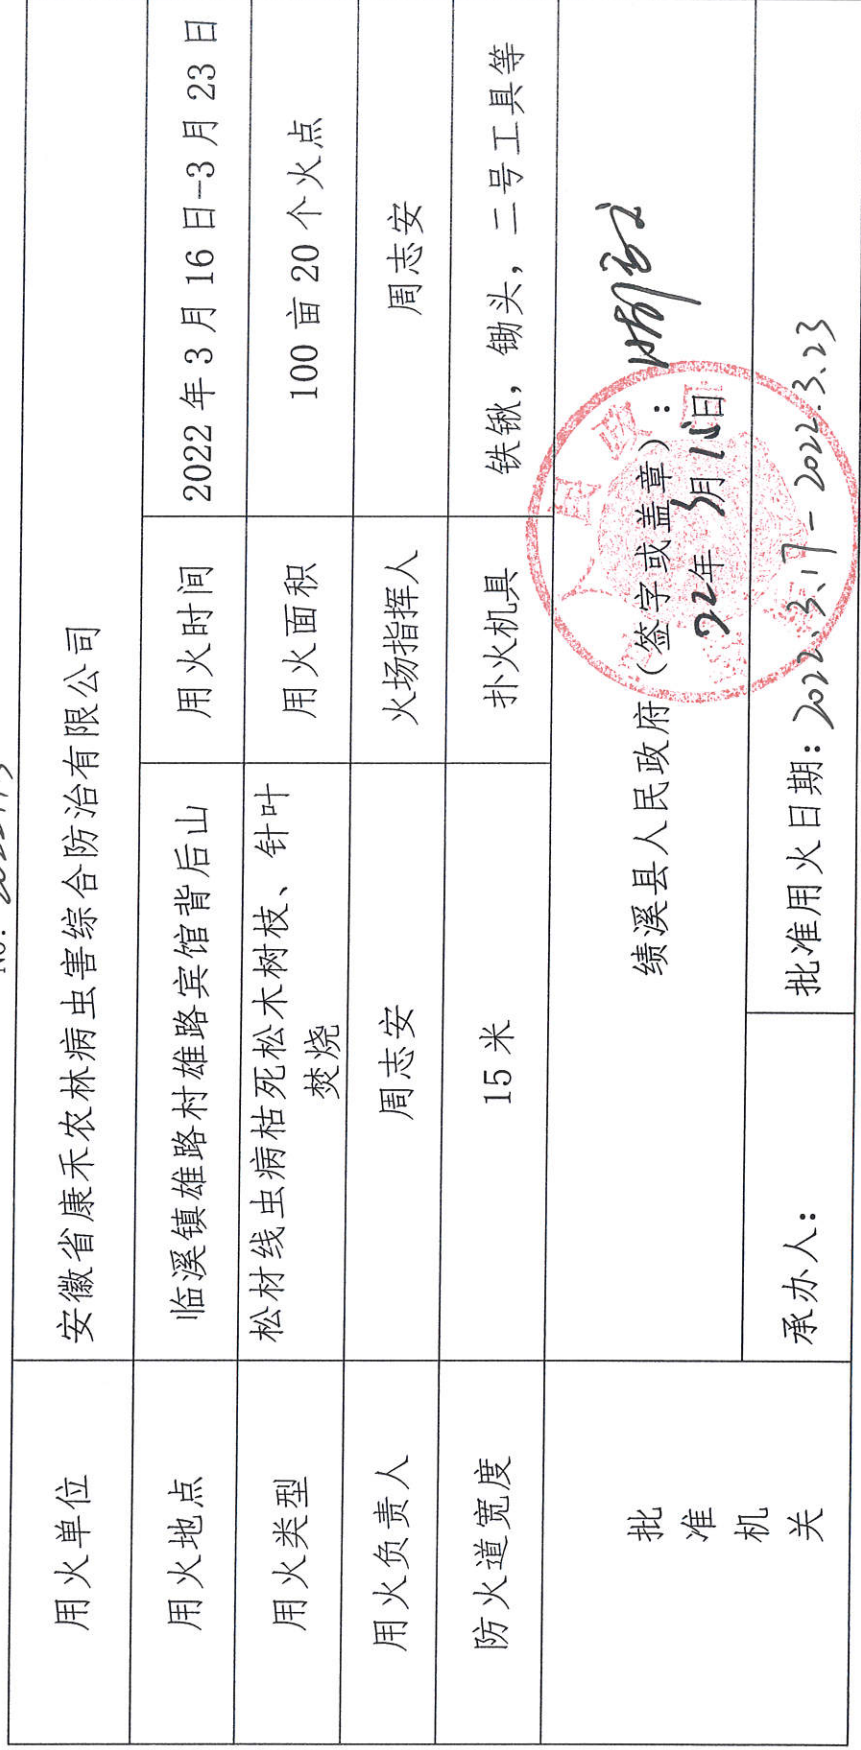 用火单位 安徽省康禾农林病虫害综合防治有限公司
用火地点 临溪镇雄路村雄路宾馆背后山 用火时间 2022年3月16日-3月23日
用火类型 松材线虫病枯死松木树枝、针叶 用火面积 100亩20个火点
焚烧
用火负责人 周志安 火场指挥人 周志安
防火道宽度 15米 扑火机具 铁锹，锄头，二号工具等
批
准
机
关
绩溪县人民政府（签字或盖章）：
22年3月15日
承办人： 批准用火日期：2022.3.17-2022.3.23